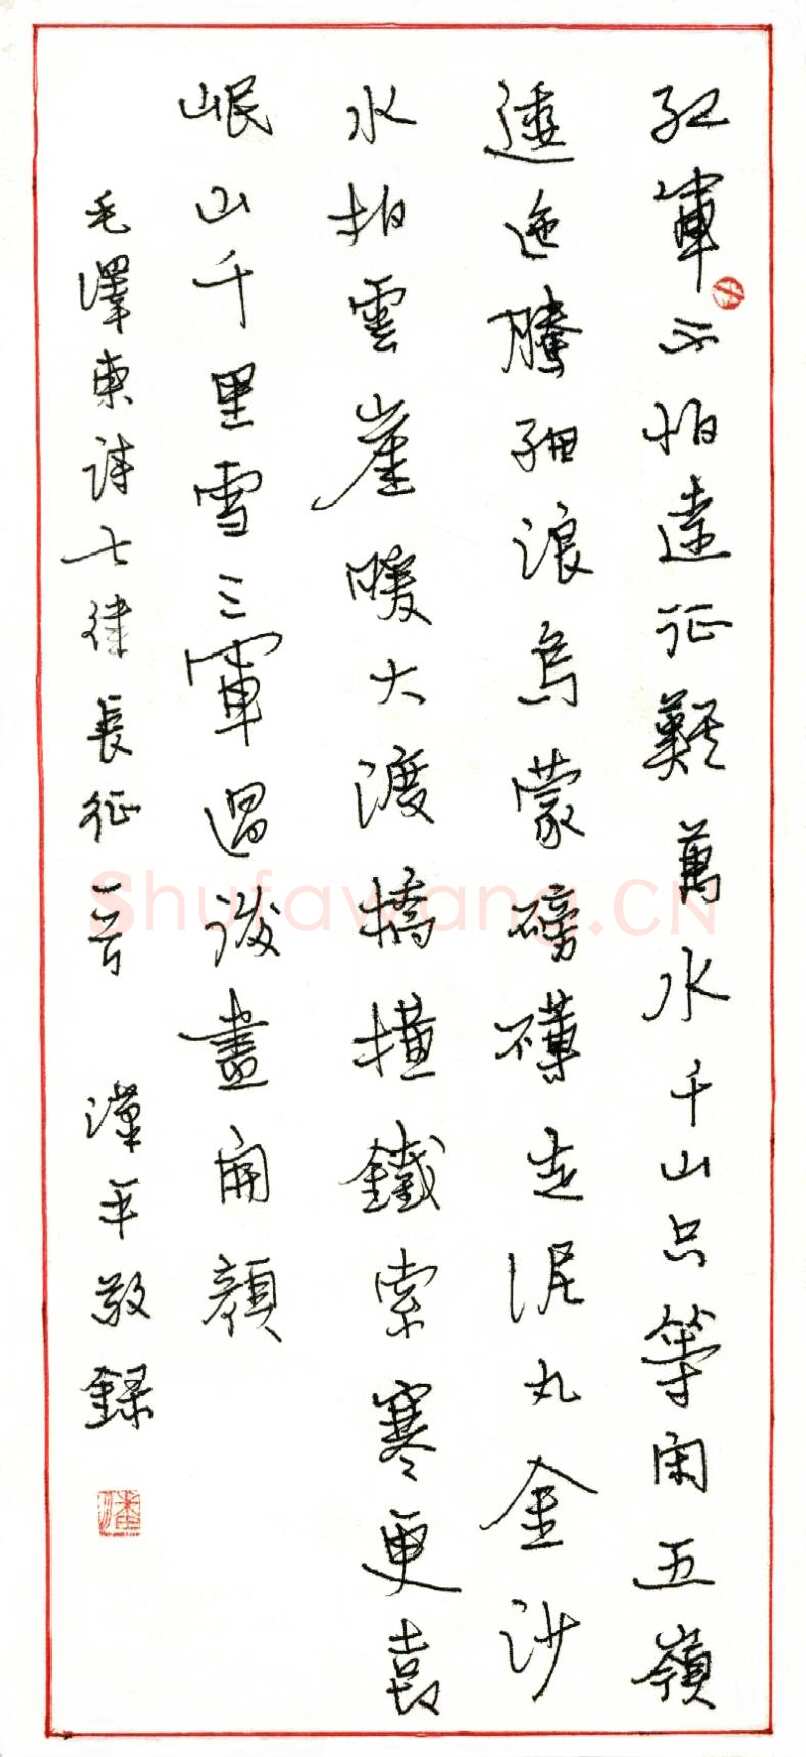 紅軍不怕遠征難萬水千山只等閑五嶺
逶迤騰細浪烏蒙磅礴走泥丸金沙
水拍雲崖暖大渡橋横鐵索寒更喜
岷山千里雪三軍過後盡開顔
毛澤東詩七律長征一首 漢平敬録
潘
Shufawang.CN